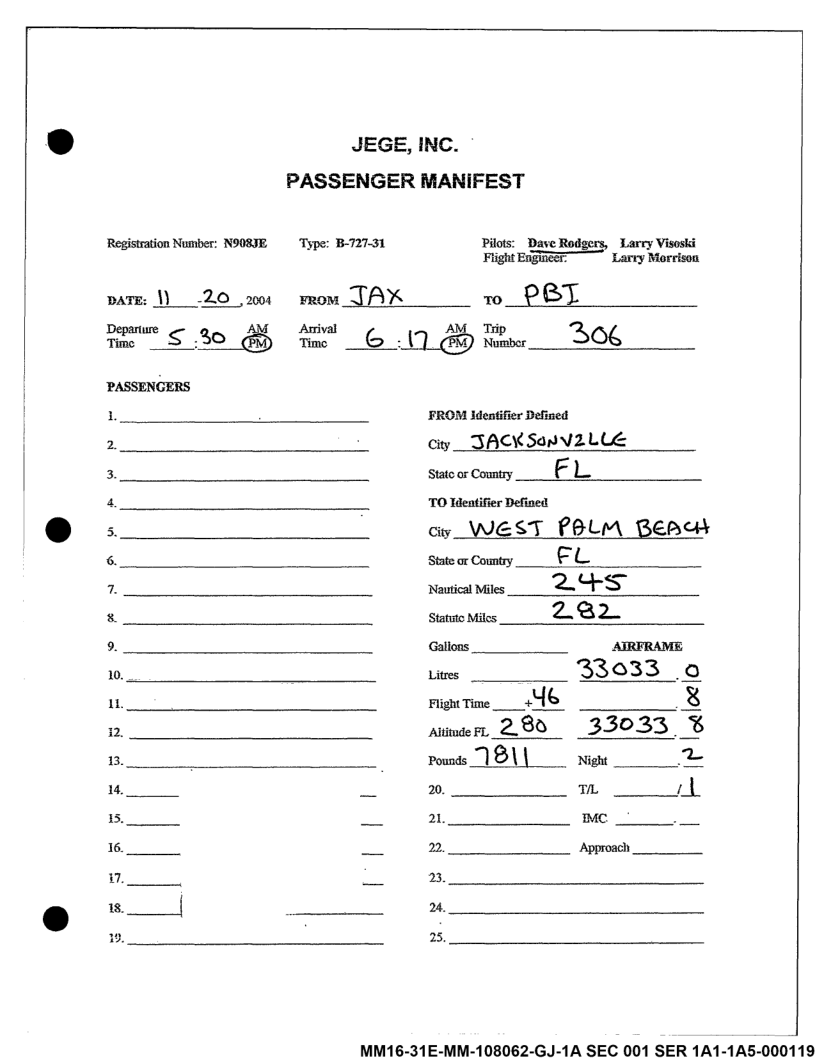 JEGE, INC.
PASSENGER MANIFEST
Registration Number: N908JE Type: B-727-31 Pilots: Dave Rodgers, Larry Visoski
Flight Engineer: Larry Morrison
DATE: 11 -20, 2004 FROM JAX TO PBI
Departure Time 5:30 AM PM Arrival Time 6:17 AM PM Trip Number 306
PASSENGERS
1. FROM Identifier Defined
2. City JACKSONVILLE
3. State or Country FL
4. TO Identifier Defined
5. City WEST PALM BEACH
6. State or Country FL
7. Nautical Miles 245
8. Statute Miles 282
9. Gallons AIRFRAME
10. Litres 33033.0
11. Flight Time +46 .8
12. Altitude FL 280 33033.8
13. Pounds 7811 Night .2
14. 20. T/L /1
15. 21. IMC .
16. 22. Approach
17. 23.
18. 24.
19. 25.
MM16-31E-MM-108062-GJ-1A SEC 001 SER 1A1-1A5-000119